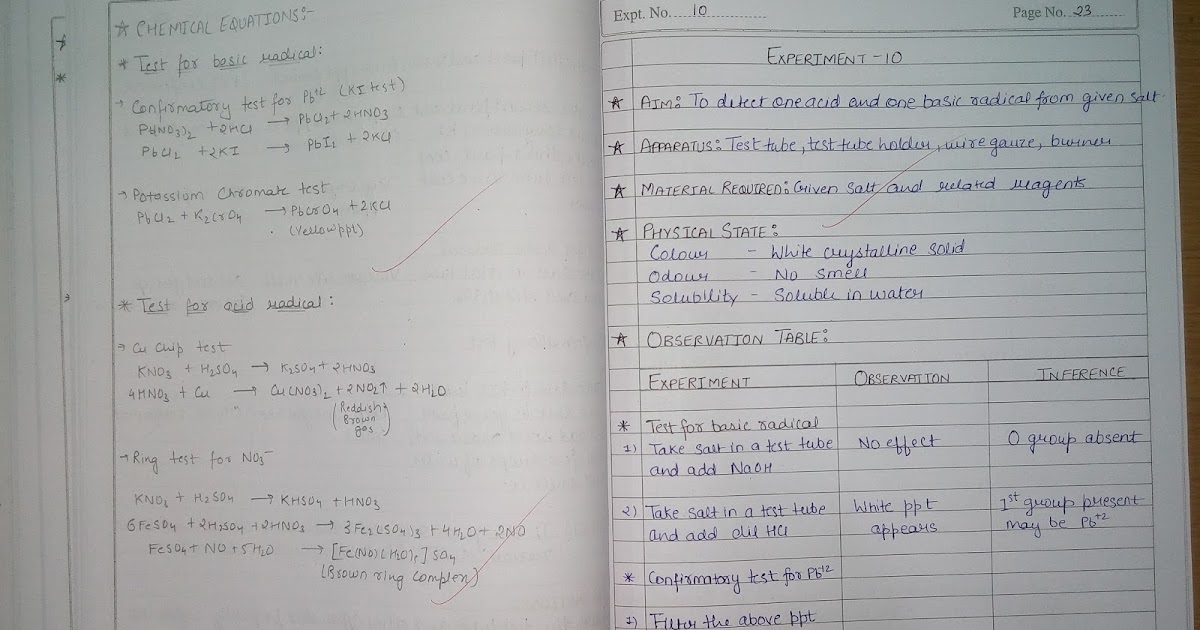 ☆ CHEMICAL EQUATIONS:-
* Test for basic radical:
→ Confirmatory test for Pb+2 (KI test)
Pb(NO3)2 + 2HCl → PbCl2 + 2HNO3
PbCl2 + 2KI → PbI2 + 2KCl
→ Potassium Chromate test
PbCl2 + K2CrO4 → PbCrO4 + 2KCl
(Yellow ppt)
* Test for acid radical:
→ Cu chip test
KNO3 + H2SO4 → K2SO4 + 2HNO3
4HNO3 + Cu → Cu(NO3)2 + 2NO2↑ + 2H2O
(Reddish
Brown
gas)
→ Ring test for NO3-
KNO3 + H2SO4 → KHSO4 + HNO3
6FeSO4 + 2H2SO4 + 2HNO3 → 3Fe2(SO4)3 + 4H2O + 2NO
FeSO4 + NO + 5H2O → [Fe(NO)(H2O)5] SO4
(Brown ring complex)
Expt. No. 10 Page No. 23
EXPERIMENT - 10
☆ AIM: To detect one acid and one basic radical from given salt.
☆ APPARATUS: Test tube, test tube holder, wire gauze, burner
☆ MATERIAL REQUIRED: Given salt and related reagents
☆ PHYSICAL STATE:
Colour - White crystalline solid
Odour - No smell
Solubility - Soluble in water
☆ OBSERVATION TABLE:
EXPERIMENT OBSERVATION INFERENCE
* Test for basic radical
1) Take salt in a test tube No effect 0 group absent
and add NaOH
2) Take salt in a test tube White ppt 1st group present
and add dil HCl appears may be Pb+2
* Confirmatory test for Pb+2
1) Filter the above ppt